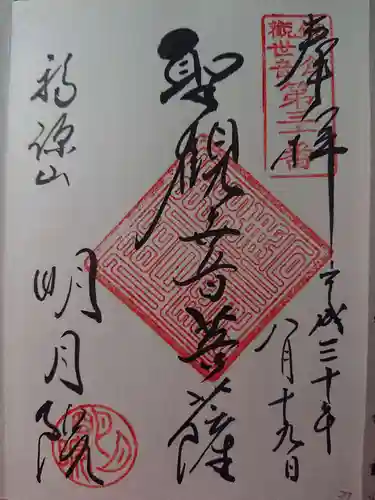 奉拝
觀世音第三十番
平成三十年
八月十九日
聖観世音菩薩
福源山
明月院